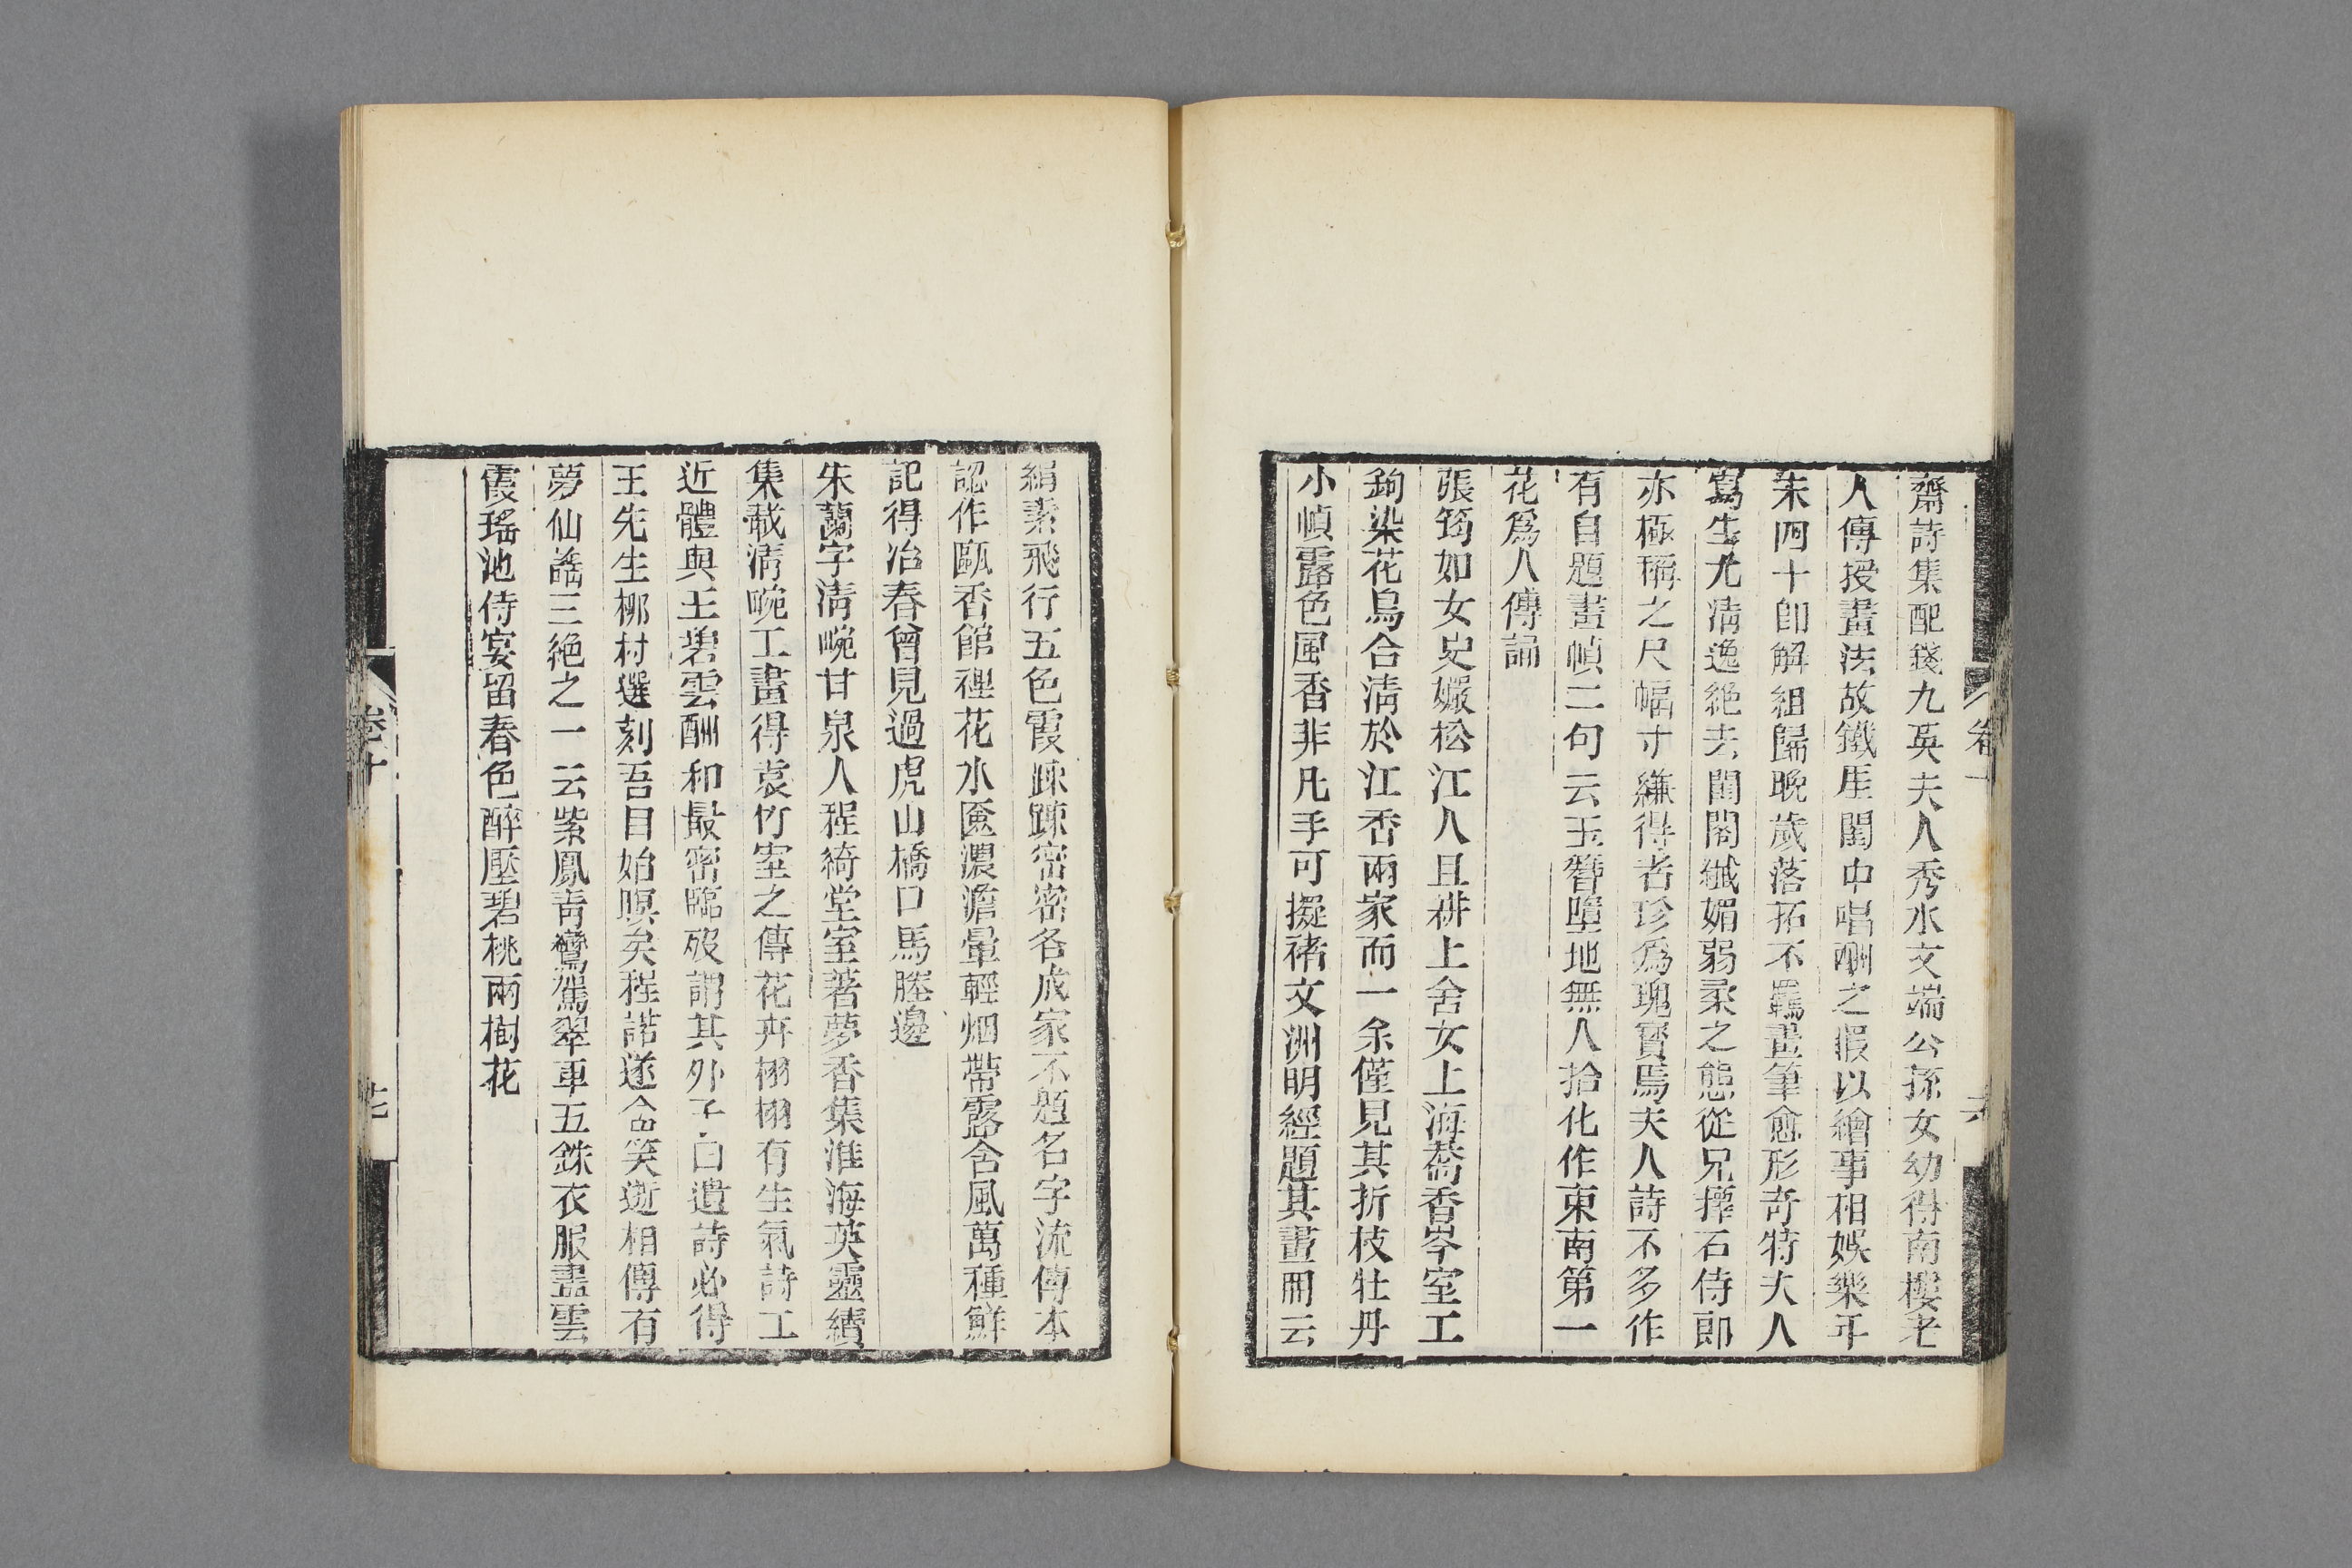 齋詩集配錢九英夫人秀水文端公孫女幼得南樓老
人傳授畫法故鐵厓閨中唱酬之暇以繪事相娛樂年
未四十卽解組歸晚歲落拓不羈畫筆愈形奇特夫人
寫生尤淸逸絶去閨閣纖媚弱柔之態從兄擇石侍郎
亦極稱之尺幅寸縑得者珍爲瑰寳焉夫人詩不多作
有自題畫幀二句云玉簪墮地無人拾化作東南第一
花爲人傳誦
張筠如女史嫄松江人且耕上舍女上海喬香岑室工
鉤染花鳥合淸於江香兩家而一余僅見其折枝牡丹
小幀露色風香非凡手可擬褚文洲明經題其畫冊云
絹素飛行五色霞疎疎密密各成家不題名字流傳本
認作甌香館裡花水匳濃澹暈輕烟帶露含風萬種鮮
記得冶春曾見過虎山橋口馬塍邊
朱蘭字淸畹甘泉人程綺堂室著夢香集淮海英靈續
集載淸畹工畫得袁竹室之傳花卉栩栩有生氣詩工
近體與王碧雲酬和最密臨歿謂其外子曰遺詩必得
王先生柳村選刻吾目始瞑矣程諾遂含笑逝相傳有
夢仙謠三絶之一云紫鳳靑鸞駕翠車五銖衣服盡雲
霞瑤池侍宴留春色醉壓碧桃兩樹花
卷十